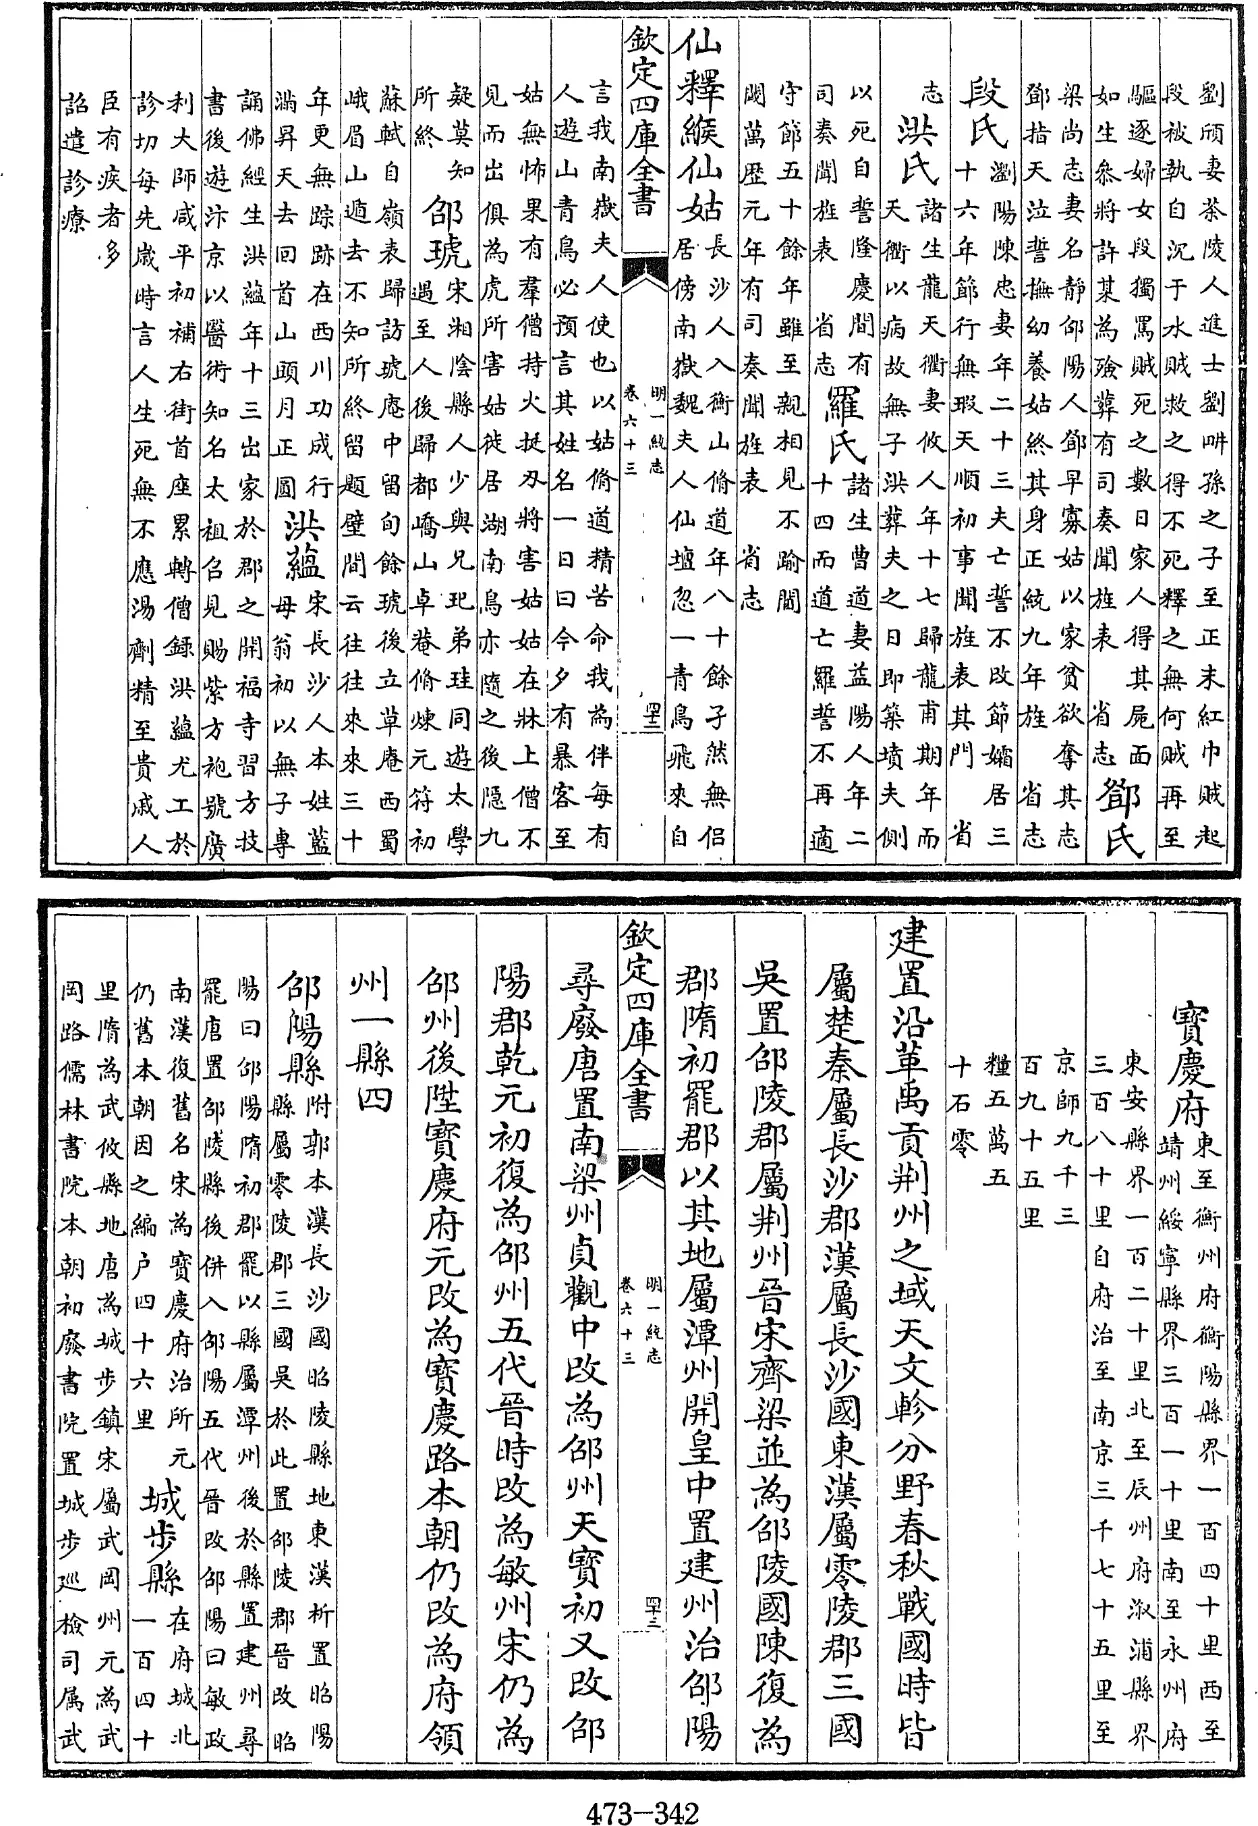 劉頎妻茶陵人進士劉畊孫之子至正末紅巾賊起
段被執自沉于水賊救之得不死釋之無何賊再至
驅逐婦女段獨罵賊死之數日家人得其屍面
如生叅將許某為殮葬有司奏聞旌表 省志
鄧氏
梁尚志妻名靜邵陽人鄧早寡姑以家貧欲奪其志
鄧指天泣誓撫幼養姑終其身正統九年旌 省志
段氏
瀏陽陳忠妻年二十三夫亡誓不改節孀居三
十六年節行無瑕天順初事聞旌表其門 省
志
洪氏
諸生龍天衢妻攸人年十七歸龍甫期年而
天衢以病故無子洪葬夫之日即築墳夫側
以死自誓隆慶間有
司奏聞旌表 省志
羅氏
諸生曹道妻益陽人年二
十四而道亡羅誓不再適
守節五十餘年雖至親相見不踰閫
閾萬歷元年有司奏聞旌表 省志
仙釋緱仙姑
長沙人入衡山脩道年八十餘孑然無侣
居傍南嶽魏夫人仙壇忽一青鳥飛來自
欽定四庫全書
明一統志
卷六十三
四十二
言我南嶽夫人使也以姑脩道精苦命我為伴每有
人遊山青鳥必預言其姓名一日曰今夕有暴客至
姑無怖果有羣僧持火挺刃將害姑姑在牀上僧不
見而出俱為虎所害姑徙居湖南鳥亦隨之後隱九
疑莫知
所終
邵琥
宋湘陰縣人少與兄玘弟珪同遊太學
遇至人後歸都嶠山卓菴脩煉元符初
蘇軾自嶺表歸訪琥庵中留旬餘琥後立草庵西蜀
峨眉山遁去不知所終留題壁間云往往來來三十
年更無踪跡在西川功成行
滿昇天去回首山頭月正圓
洪蘊
宋長沙人本姓藍
母翁初以無子專
誦佛經生洪蘊年十三出家於郡之開福寺習方技
書後遊汴京以醫術知名太祖召見賜紫方袍號廣
利大師咸平初補右街首座累轉僧録洪蘊尤工於
診切每先歲時言人生死無不應湯劑精至貴戚人
臣有疾者多
詔遣診療
寳慶府
東至衡州府衡陽縣界一百四十里西至
靖州綏寧縣界三百一十里南至永州府
東安縣界一百二十里北至辰州府溆浦縣界
三百八十里自府治至南京三千七十五里至
京師九千三
百九十五里
糧五萬五
十石零
建置沿革禹貢荆州之域天文軫分野春秋戰國時皆
屬楚秦屬長沙郡漢屬長沙國東漢屬零陵郡三國
吳置邵陵郡屬荆州晉宋齊梁並為邵陵國陳復為
郡隋初罷郡以其地屬潭州開皇中置建州治邵陽
欽定四庫全書
明一統志
卷六十三
四十三
尋廢唐置南梁州貞觀中改為邵州天寳初又改邵
陽郡乾元初復為邵州五代晉時改為敏州宋仍為
邵州後陞寳慶府元改為寳慶路本朝仍改為府領
州一縣四
邵陽縣
附郭本漢長沙國昭陵縣地東漢析置昭陽
縣屬零陵郡三國吳於此置邵陵郡晉改昭
陽曰邵陽隋初郡罷以縣屬潭州後於縣置建州尋
罷唐置邵陵縣後併入邵陽五代晉改邵陽曰敏政
南漢復舊名宋為寳慶府治所元
仍舊本朝因之編戶四十六里
城步縣
在府城北
一百四十
里隋為武攸縣地唐為城步鎮宋屬武岡州元為武
岡路儒林書院本朝初廢書院置城步巡檢司属武
473-342